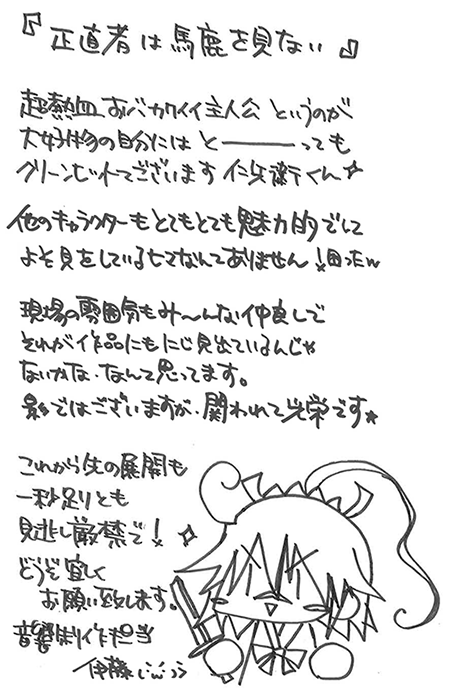 『正直者は馬鹿を見ない』
超熱血おバカワイイ主人公というのが
大好物の自分にはと―――っても
グリーンヒットでございます仁兵衛くん☆
他のキャラクターもとてもとても魅力的でして
よそ見をしているヒマなんてありません！困ったw
現場の雰囲気もみ〜んな仲良しで
それが作品にもにじみ出ているんじゃ
ないかな、なんて思ってます。
影ではございますが、関われて光栄です☆
これから先の展開も
一秒足りとも
見逃し厳禁で！☆
どうぞ宜しく
お願い致します。
音響制作担当
伊藤